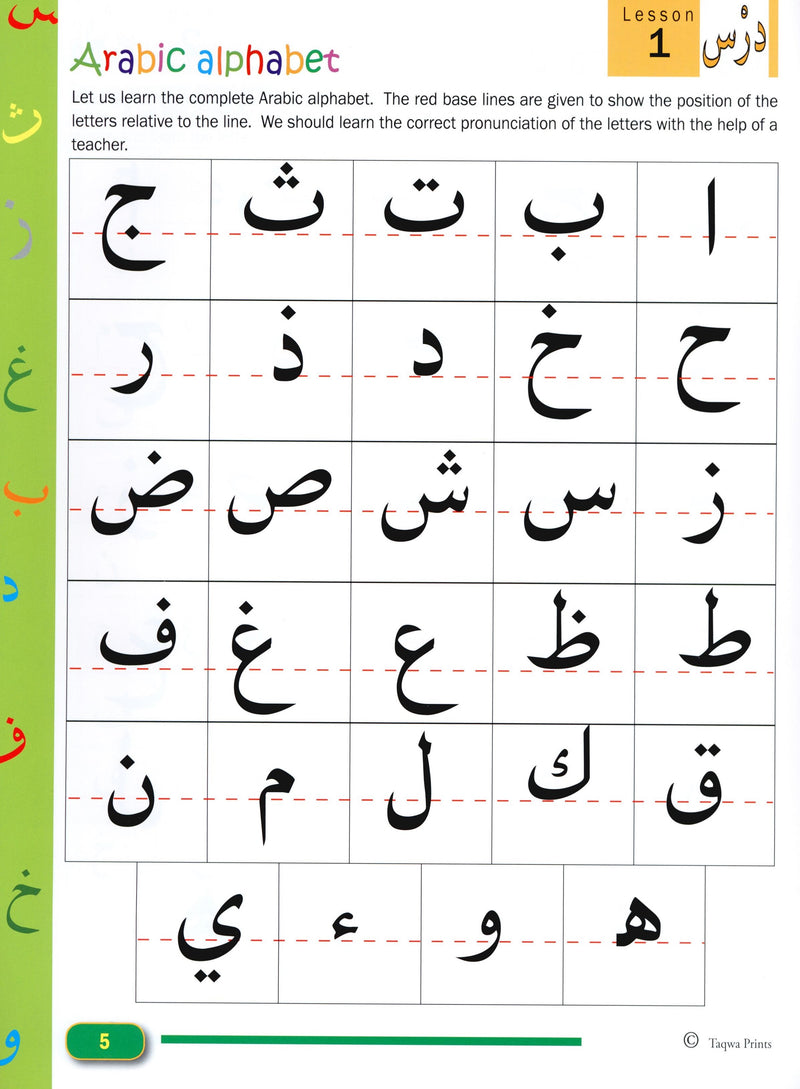 Lesson
1
درْس
Arabic alphabet
Let us learn the complete Arabic alphabet. The red base lines are given to show the position of the
letters relative to the line. We should learn the correct pronunciation of the letters with the help of a
teacher.
ا ب ت ث ج
ح خ د ذ ر
ز س ش ص ض
ط ظ ع غ ف
ق ك ل م ن
ه و ء ي
س
ث
ز
غ
ب
د
ف
خ
و
5
© Taqwa Prints